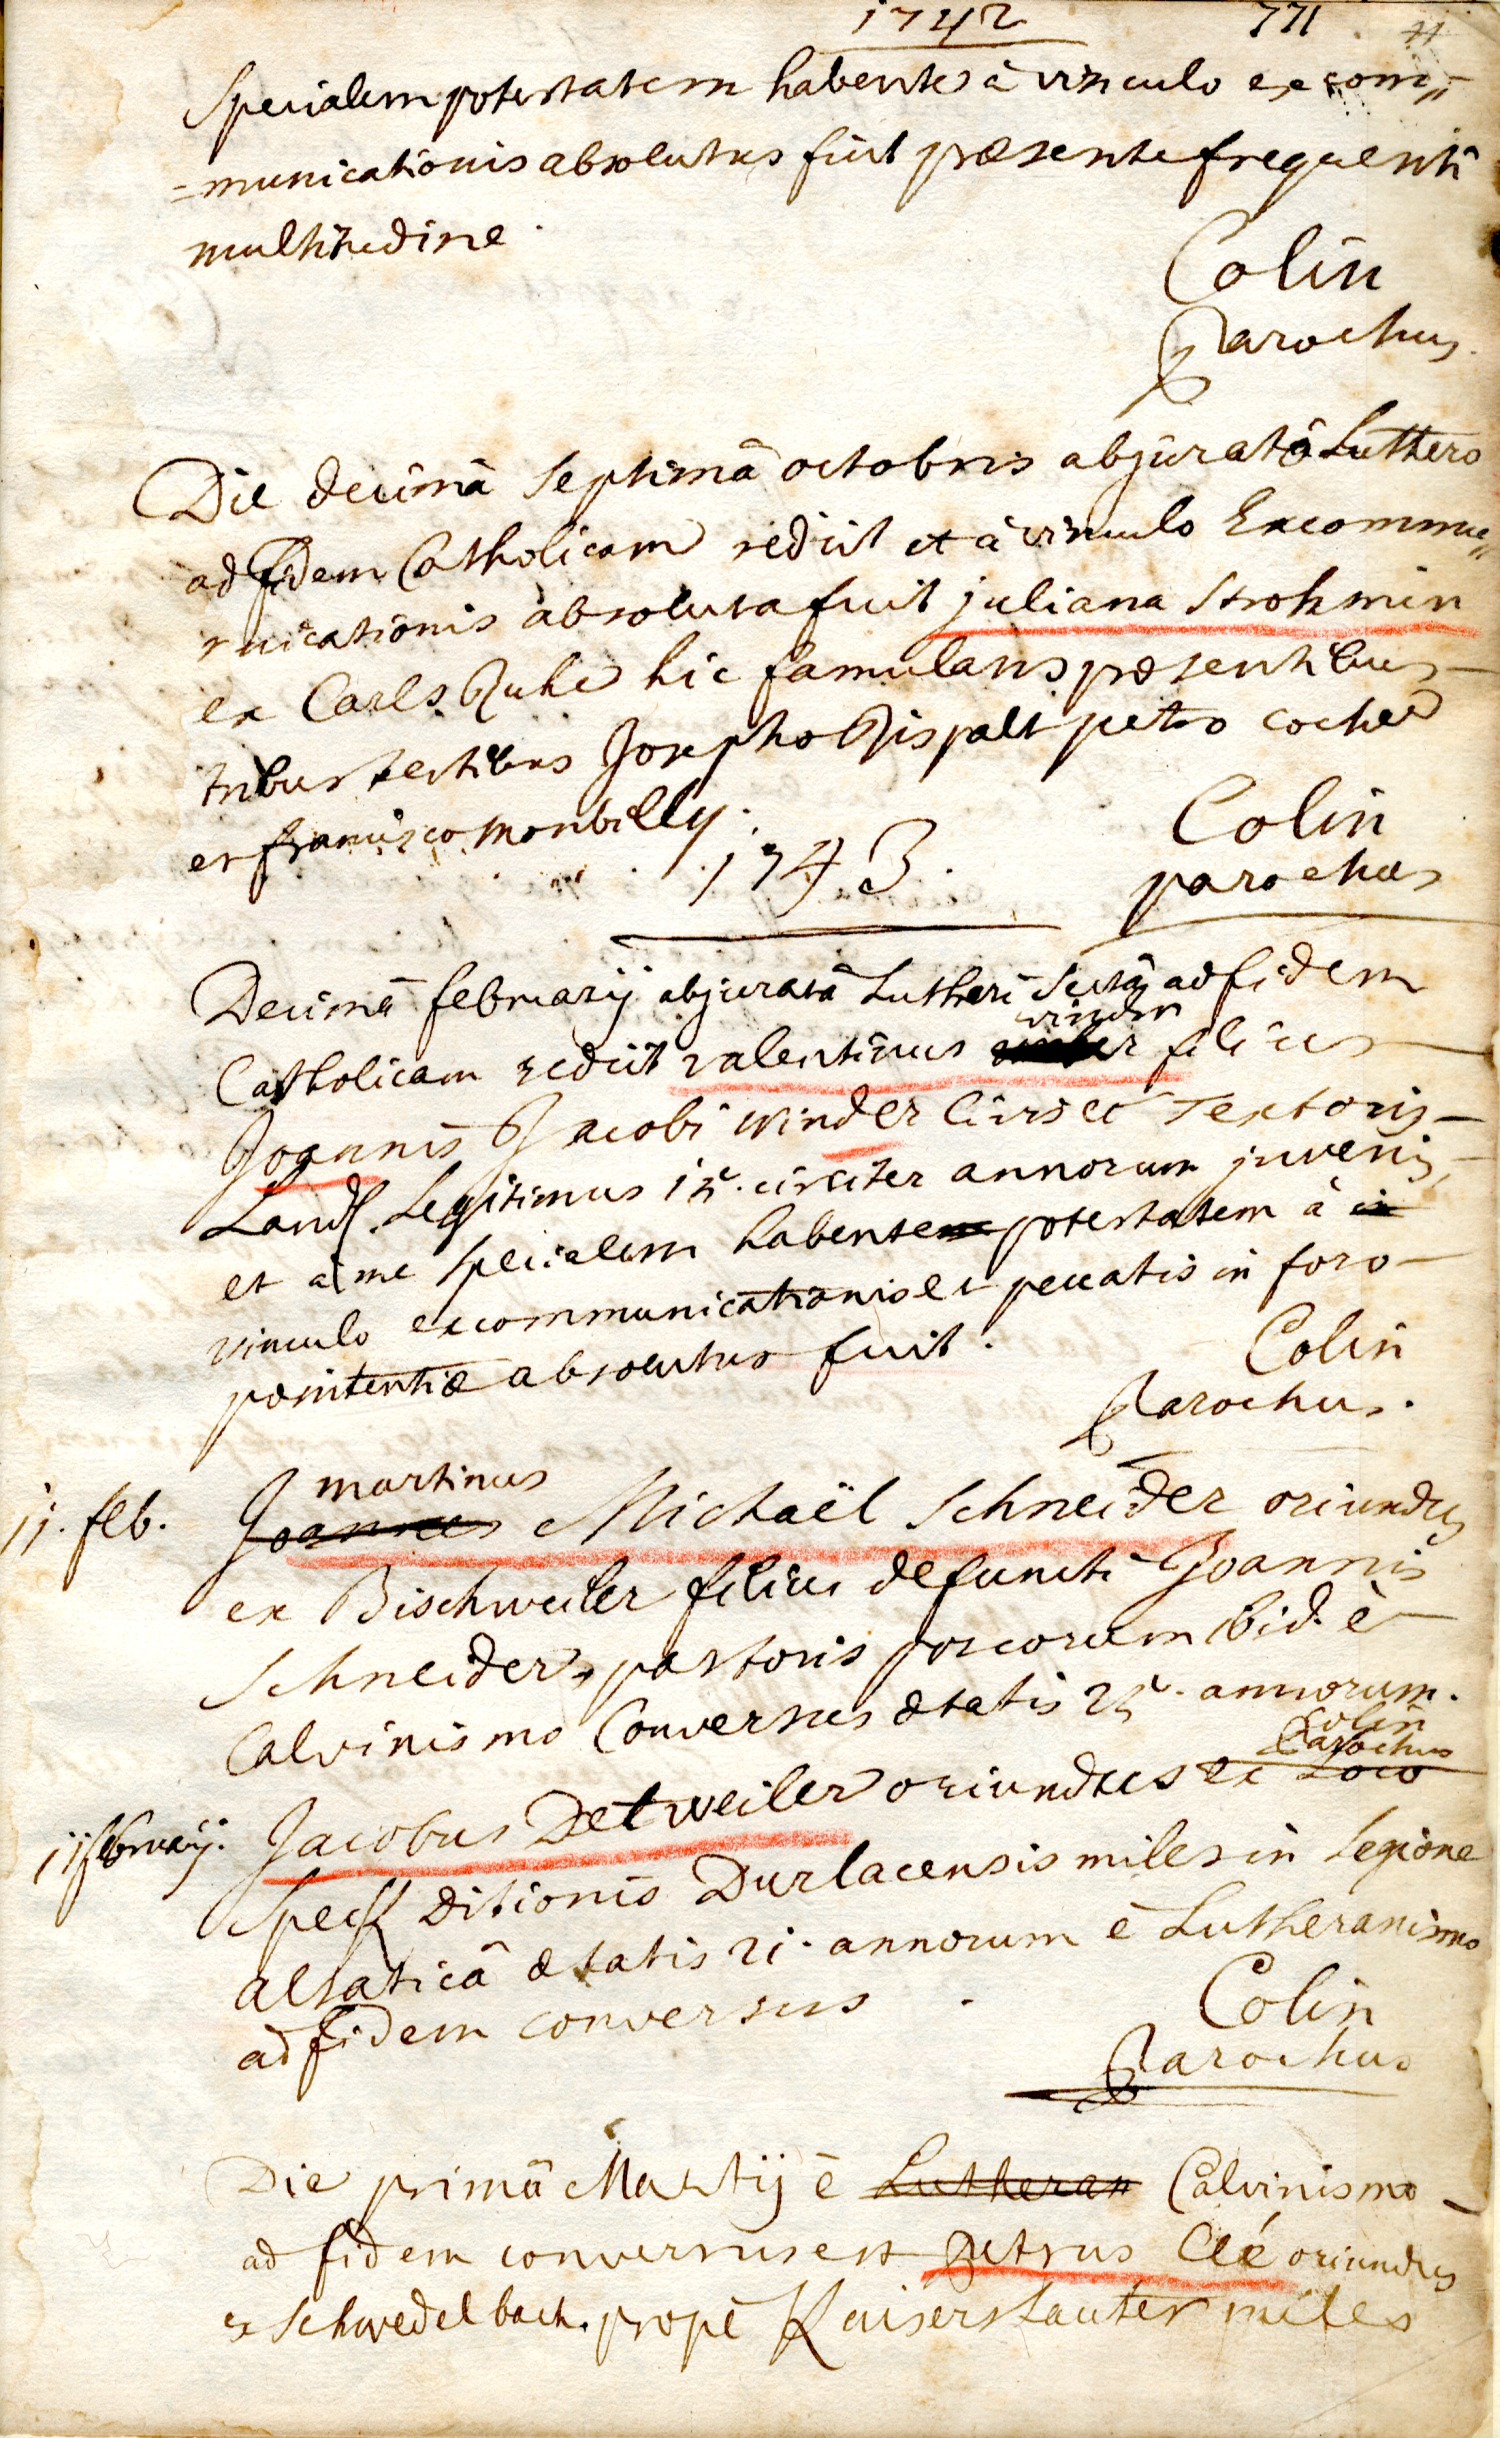 1742 771
Specialem potestatem habente à vinculo excom=
=municationis absolutus fuit præsente frequenti
multitudine.
Colin
Parochus.
Die decimâ Septimâ octobris abjurato Luthero
ad fidem Catholicam rediit et à vinculo Excommu=
nicationis absoluta fuit juliana Strohmin
ex Carls Ruhe hic famulans præsentibus
tribus testibus Josepho Rispalt petro coche
et francisco monbilly.
Colin
parochus
1743.
Decimâ februarij abjuratâ Lutheri Sectâ ad fidem
winder
Catholicam rediit valentinus filius
Joannis Jacobi winder Civis et Textoris
Legitimus 15. circiter annorum juvenis
et a me specialem habente potestatem à
vinculo excommunicationis et peccatis in foro
pœnitentiæ absolutus fuit.
Colin
Parochus.
martinus
11. feb. Joannes Michaël Schneider oriundus
ex Bischweiler filius defuncti Joannis
Schneider, pastoris porcorum ibid. è
Calvinismo Conversus ætatis 25. annorum.
Colin
Parochus
11 februarij. Jacobus Detweiler oriundus ex Loco
Speck ditionis Durlacensis miles in Legione
alsaticâ ætatis 21. annorum è Lutheranismo
ad fidem conversus
Colin
Parochus
Die primâ Martij è Lutheran Calvinismo
ad fidem conversus est petrus Clé oriundus
ex Schwedelbach. propè Kaiserslauter miles